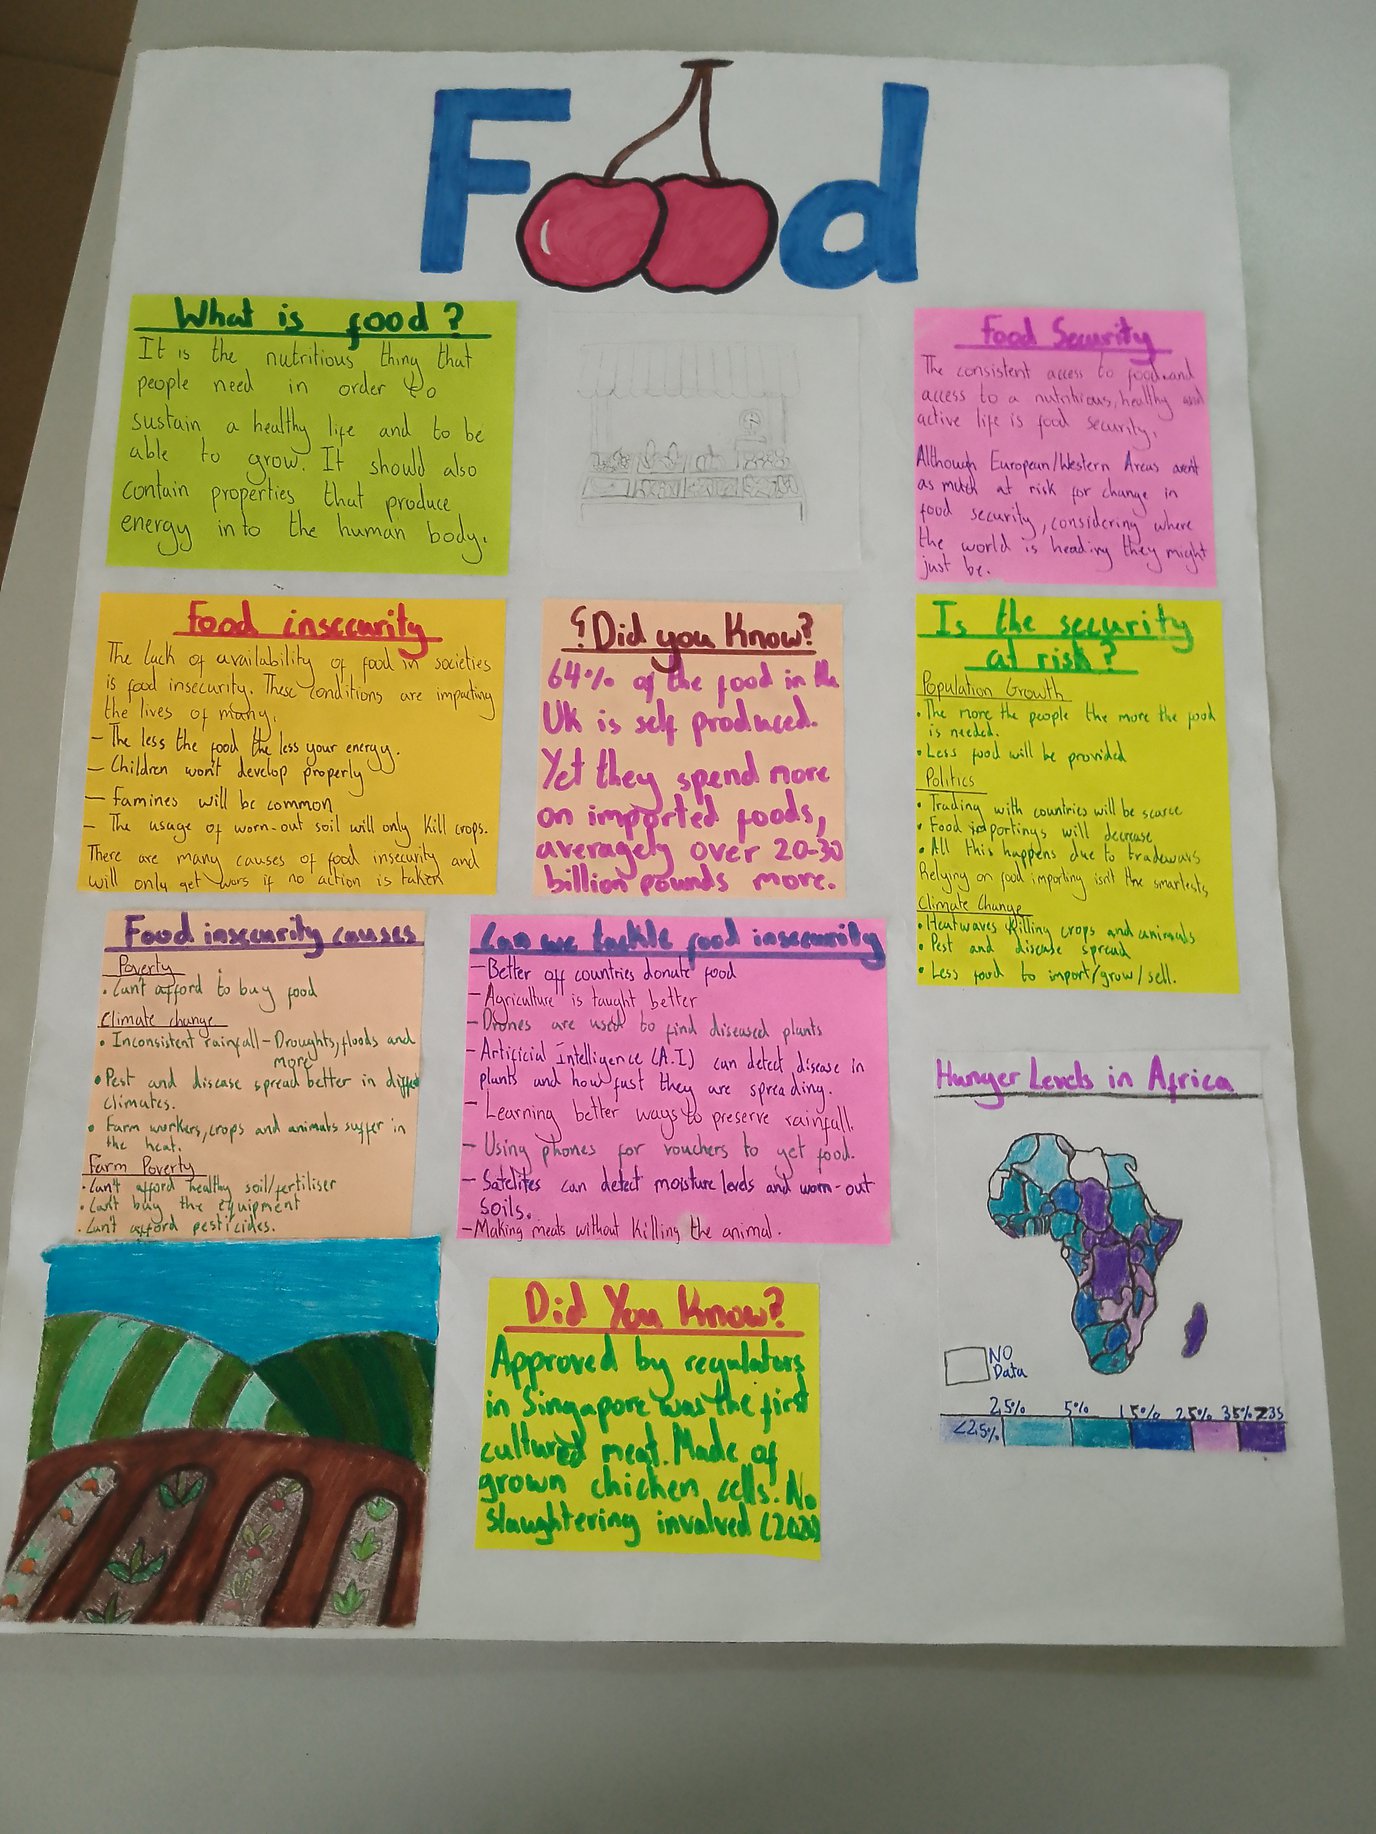 Food
What is food?
It is the nutritious thing that
people need in order to
sustain a healthy life and to be
able to grow. It should also
contain properties that produce
energy into the human body.
Food Security
The consistent access to food and
access to a nutritious, healthy and
active life is food security.
Although European/Western Areas arent
as much at risk for change in
food security, considering where
the world is heading they might
just be.
Food insecurity
The lack of availability of food in societies
is food insecurity. These conditions are impacting
the lives of many.
- The less the food the less your energy.
- Children won't develop properly
- Famines will be common
- The usage of worn-out soil will only kill crops.
There are many causes of food insecurity and
will only get wors if no action is taken
¿Did you Know?
64% of the food in the
UK is self produced.
Yet they spend more
on imported foods,
averagely over 20-30
billion pounds more.
Is the security
at risk?
Population Growth
• The more the people the more the food
is needed.
• Less food will be provided
Politics
• Trading with countries will be scarce
• Food importings will decrease
• All this happens due to tradewars
Relying on food importing isn't the smartest.
Climate Change
• Heatwaves killing crops and animals
• Pest and disease spread
• Less food to import/grow/sell.
Food insecurity causes
Poverty
• Can't afford to buy food
Climate change
• Inconsistent rainfall - Droughts, floods and
more
• Pest and disease spread better in
climates.
• Farm workers, crops and animals suffer in
the heat.
Farm Poverty
• Can't afford healthy soil/fertiliser
• Can't buy the equipment
• Can't afford pesticides.
Can we tackle food insecurity
- Better off countries donate food
- Agriculture is taught better
- Drones are used to find diseased plants
- Artificial Intelligence (A.I) can detect disease in
plants and how fast they are spreading.
- Learning better ways to preserve rainfall.
- Using phones for vouchers to get food.
- Satelites can detect moisture levels and worn-out
soils.
- Making meats without killing the animal.
Hunger Levels in Africa
NO
Data
2.5% 5% 15% 25% 35% ≥35
<2.5%
Did You Know?
Approved by regulators
in Singapore was the first
cultured meat. Made of
grown chicken cells. No
slaughtering involved (2020)